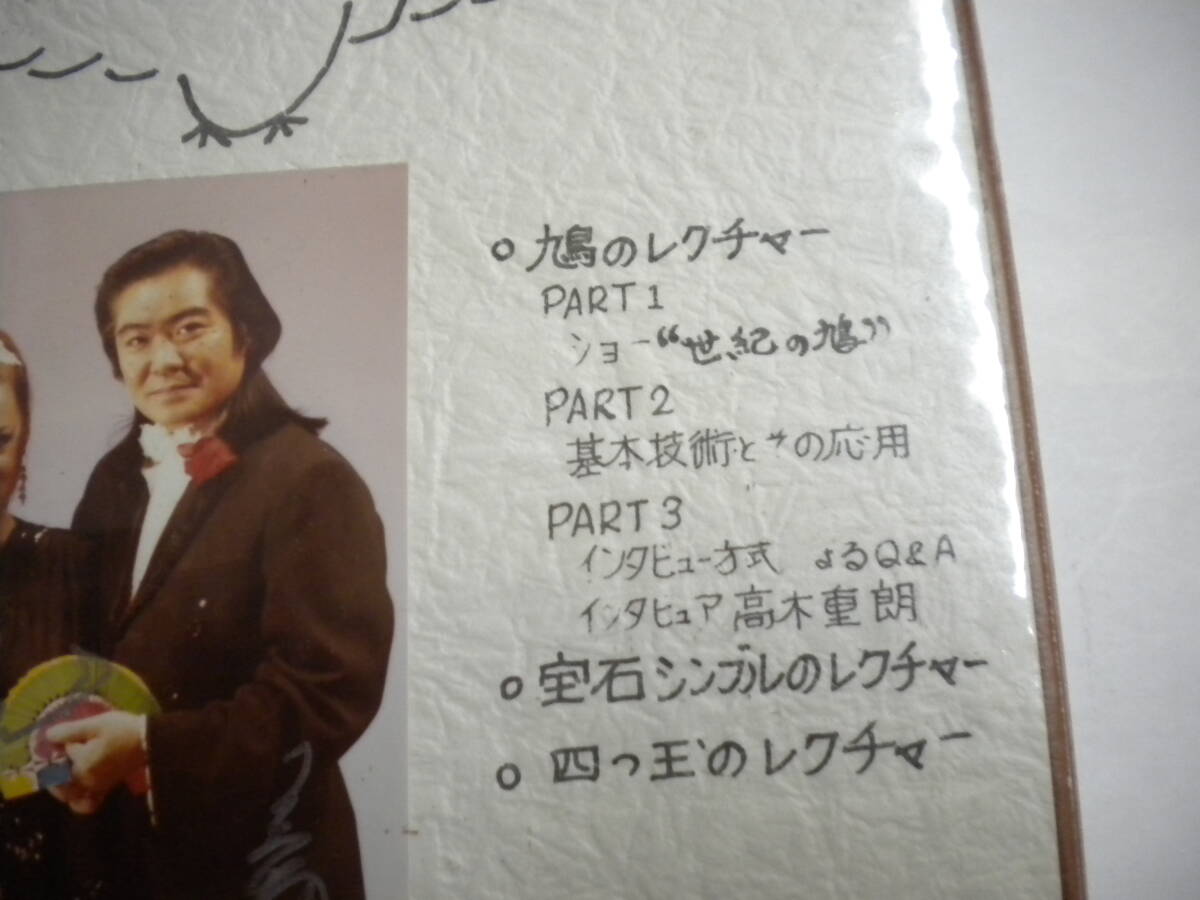 ○ 鳩のレクチャー
PART 1
ショー“世紀の鳩”
PART 2
基本技術とその応用
PART 3
インタビュー方式 よるQ&A
インタビュア 高木重朗
○ 宝石シンブルのレクチャー
○ 四つ玉のレクチャー